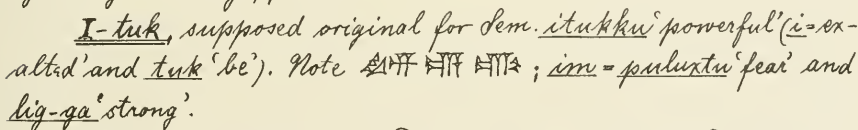 I-tuk, supposed original for Sem. itukku 'powerful' (i=ex-
alted' and tuk 'be'). Note ; im = puluxtu 'fear' and
lig-ga 'strong'.